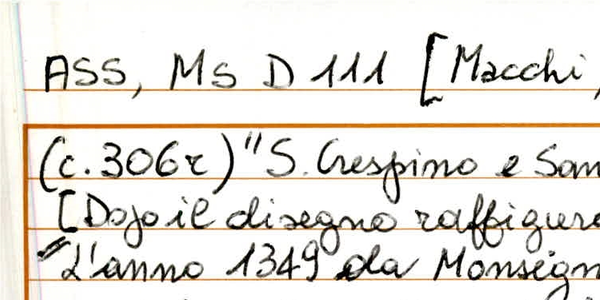 ASS, Ms D 111 [Macchi,
(c. 306r) "S. Crespino e San
[Dopo il disegno raffigura
"L'anno 1349 da Monsign